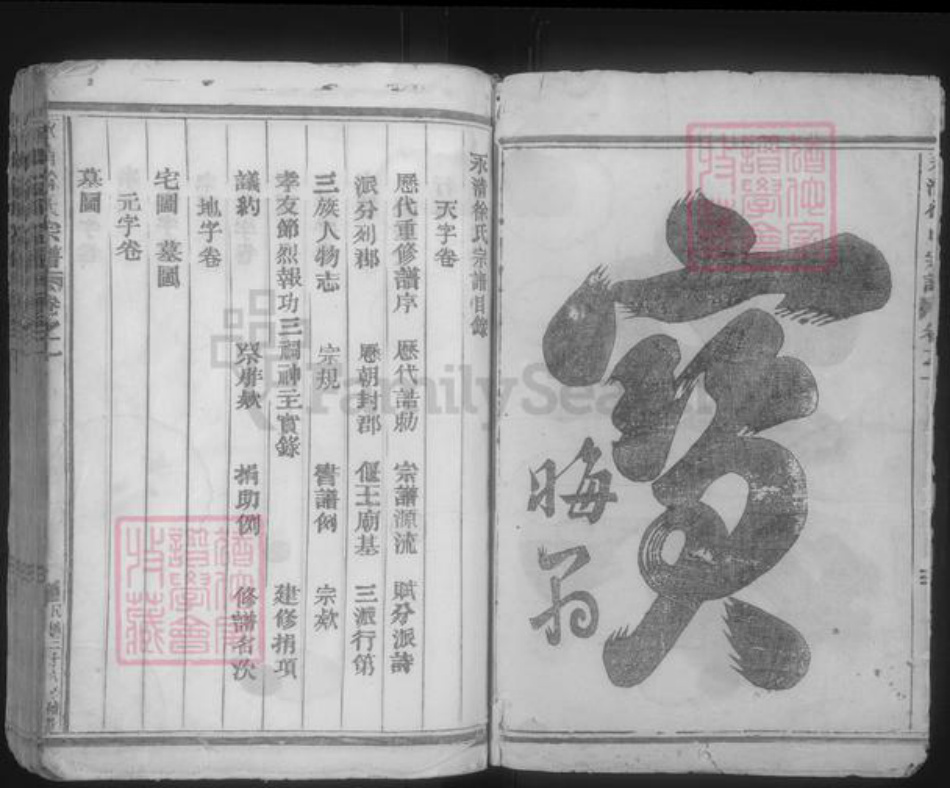 寶
晦翁
永清徐氏宗譜目錄
天字卷
歷代重修譜序 歷代誥勅 宗譜源流 賦分派詩
派分列郡 歷朝封郡 偃王廟基 三派行第
三族人物志 宗規 書譜例 宗欵
孝友節烈報功三祠神主實錄 建修捐項
議約 祭辦欵 捐助例 修譜名次
地字卷
宅圖 墓圖
元字卷
墓圖
FamilySearch
譜學會
收藏
譜學會
收藏